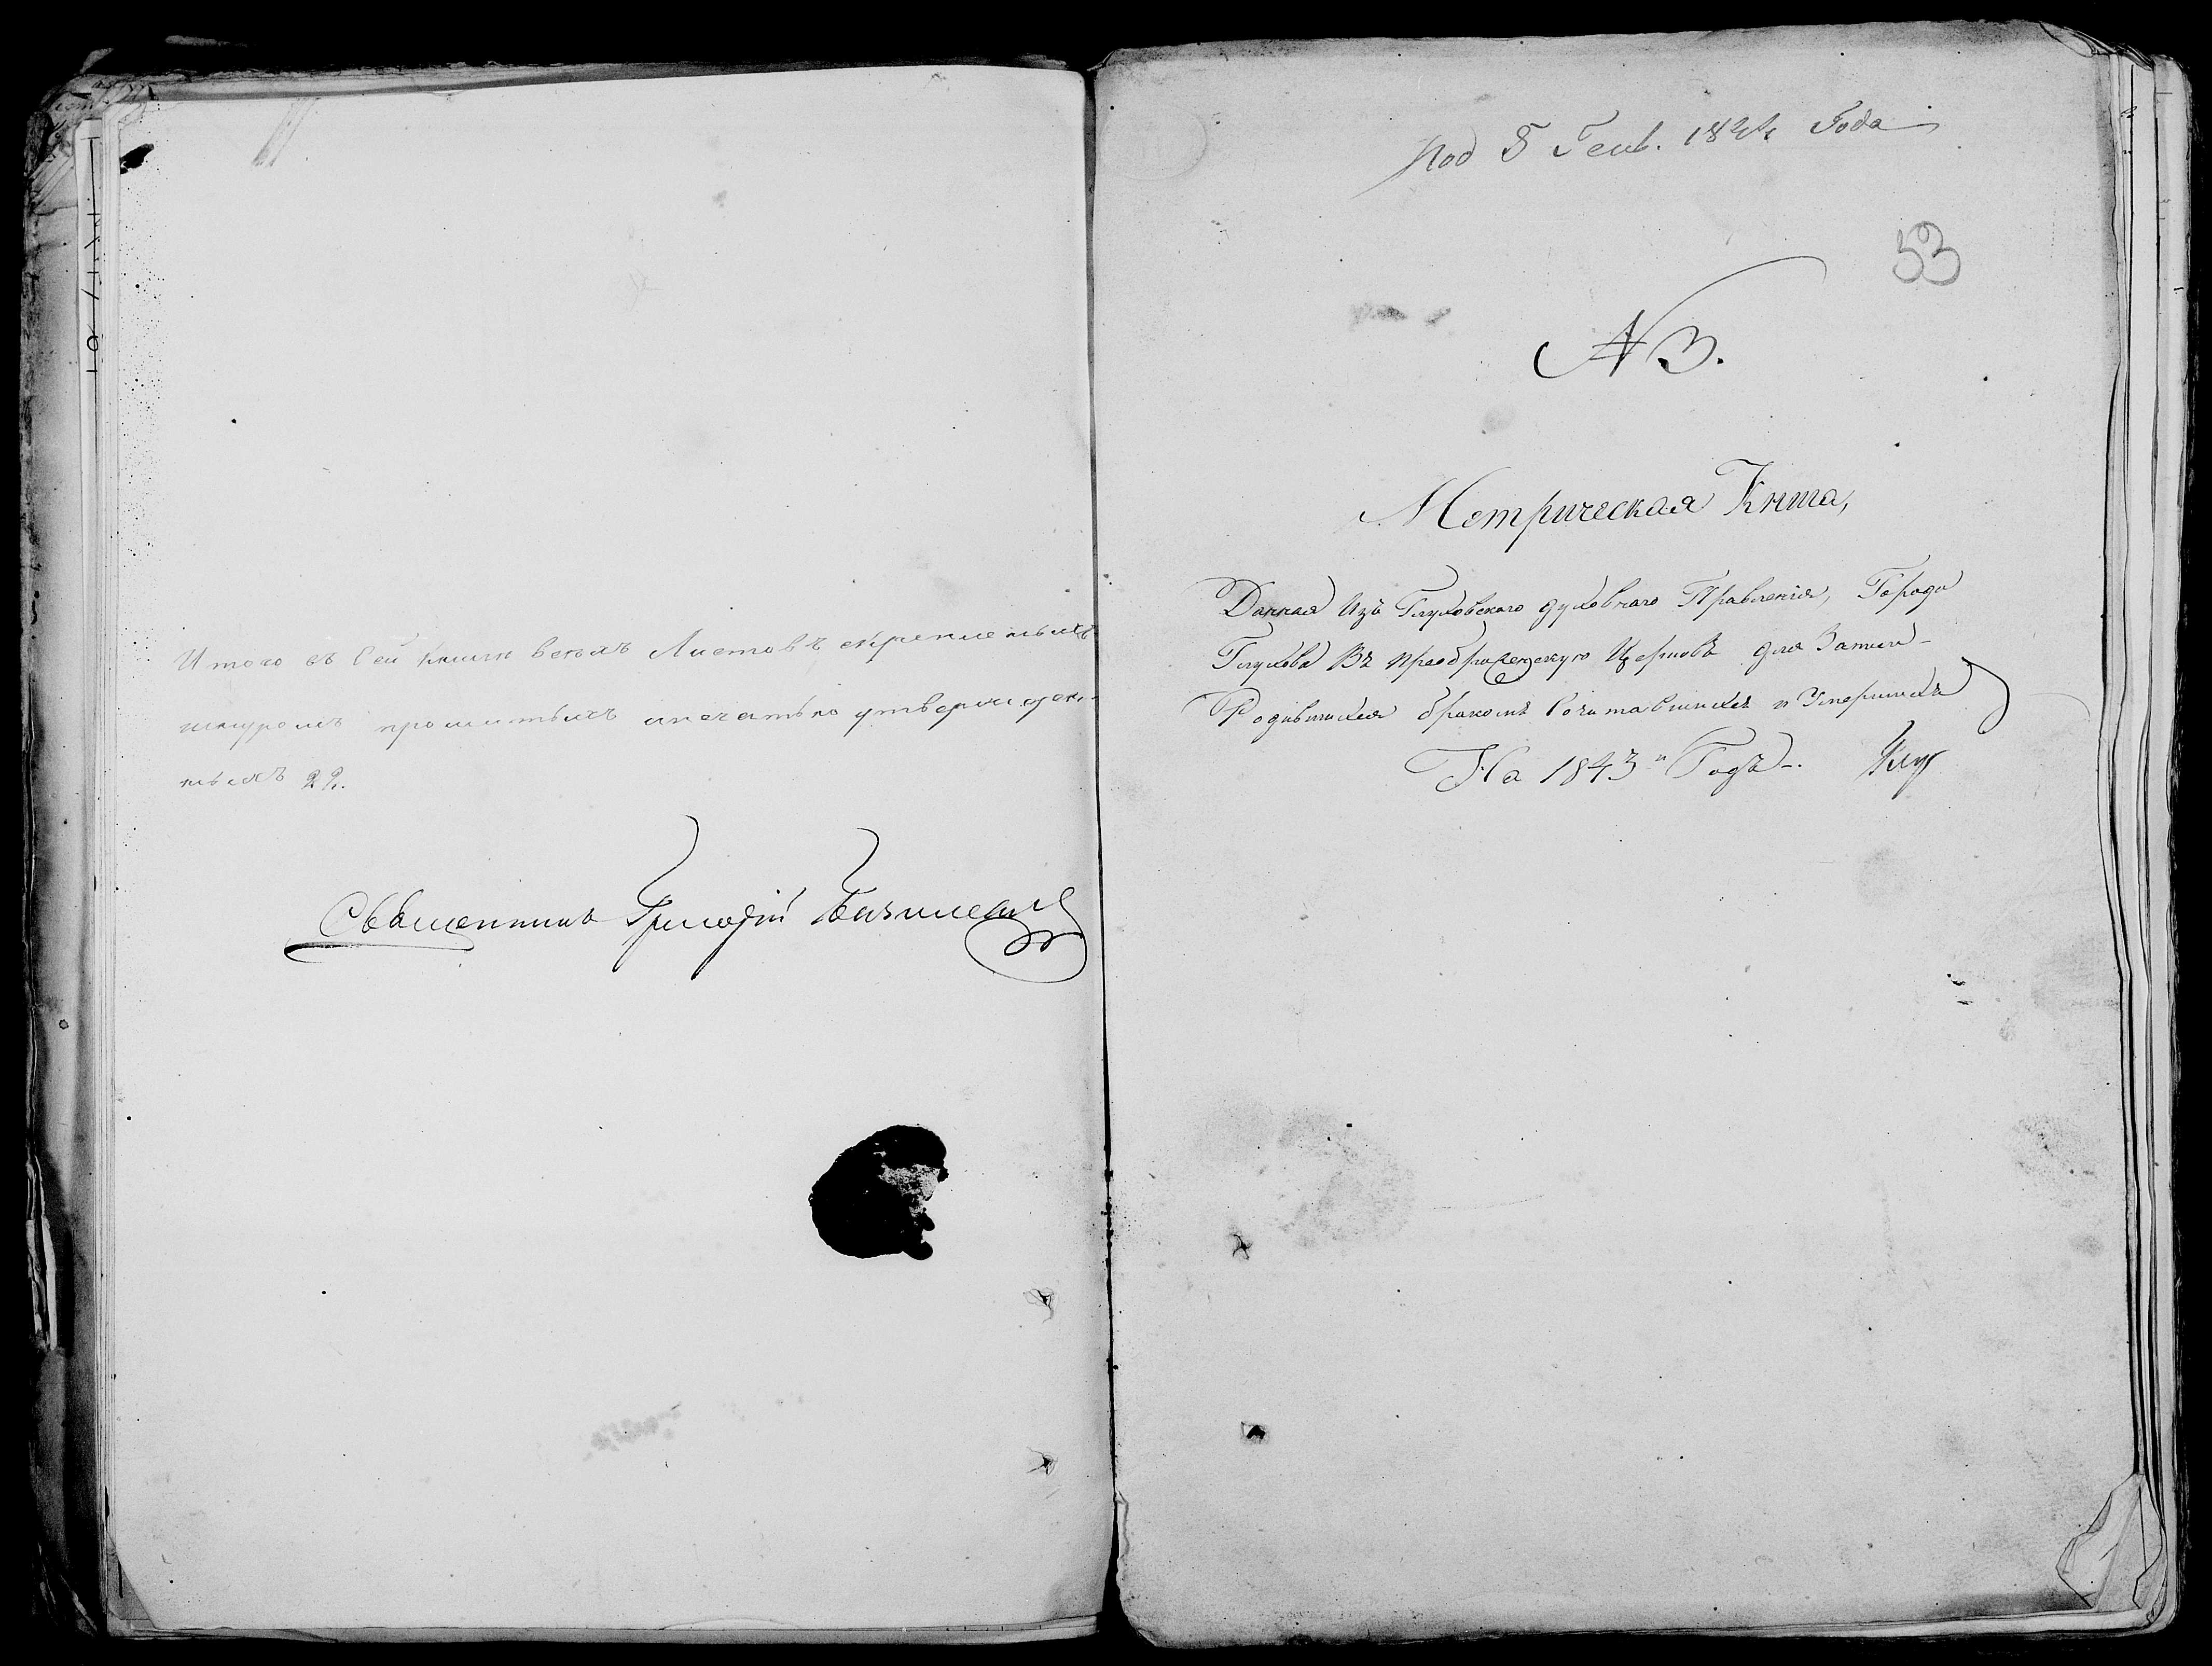 Итого въ Сей книги всехъ Листовъ скрепленыхъ
шнуромъ прошитыхъ ипечатью утвержден-
ныхъ 22.
Священникъ Григорій
Под 5 Генв. 1844 Года
53
N 3.
Метрическая Книга,
Данная Изъ Глуховского духовнаго Правленія, Города
Глухова Въ Преображенскую Церковь для Записи
Родившихся бракомъ Сочитавшихся и Умершихъ
На 1843й Годъ.